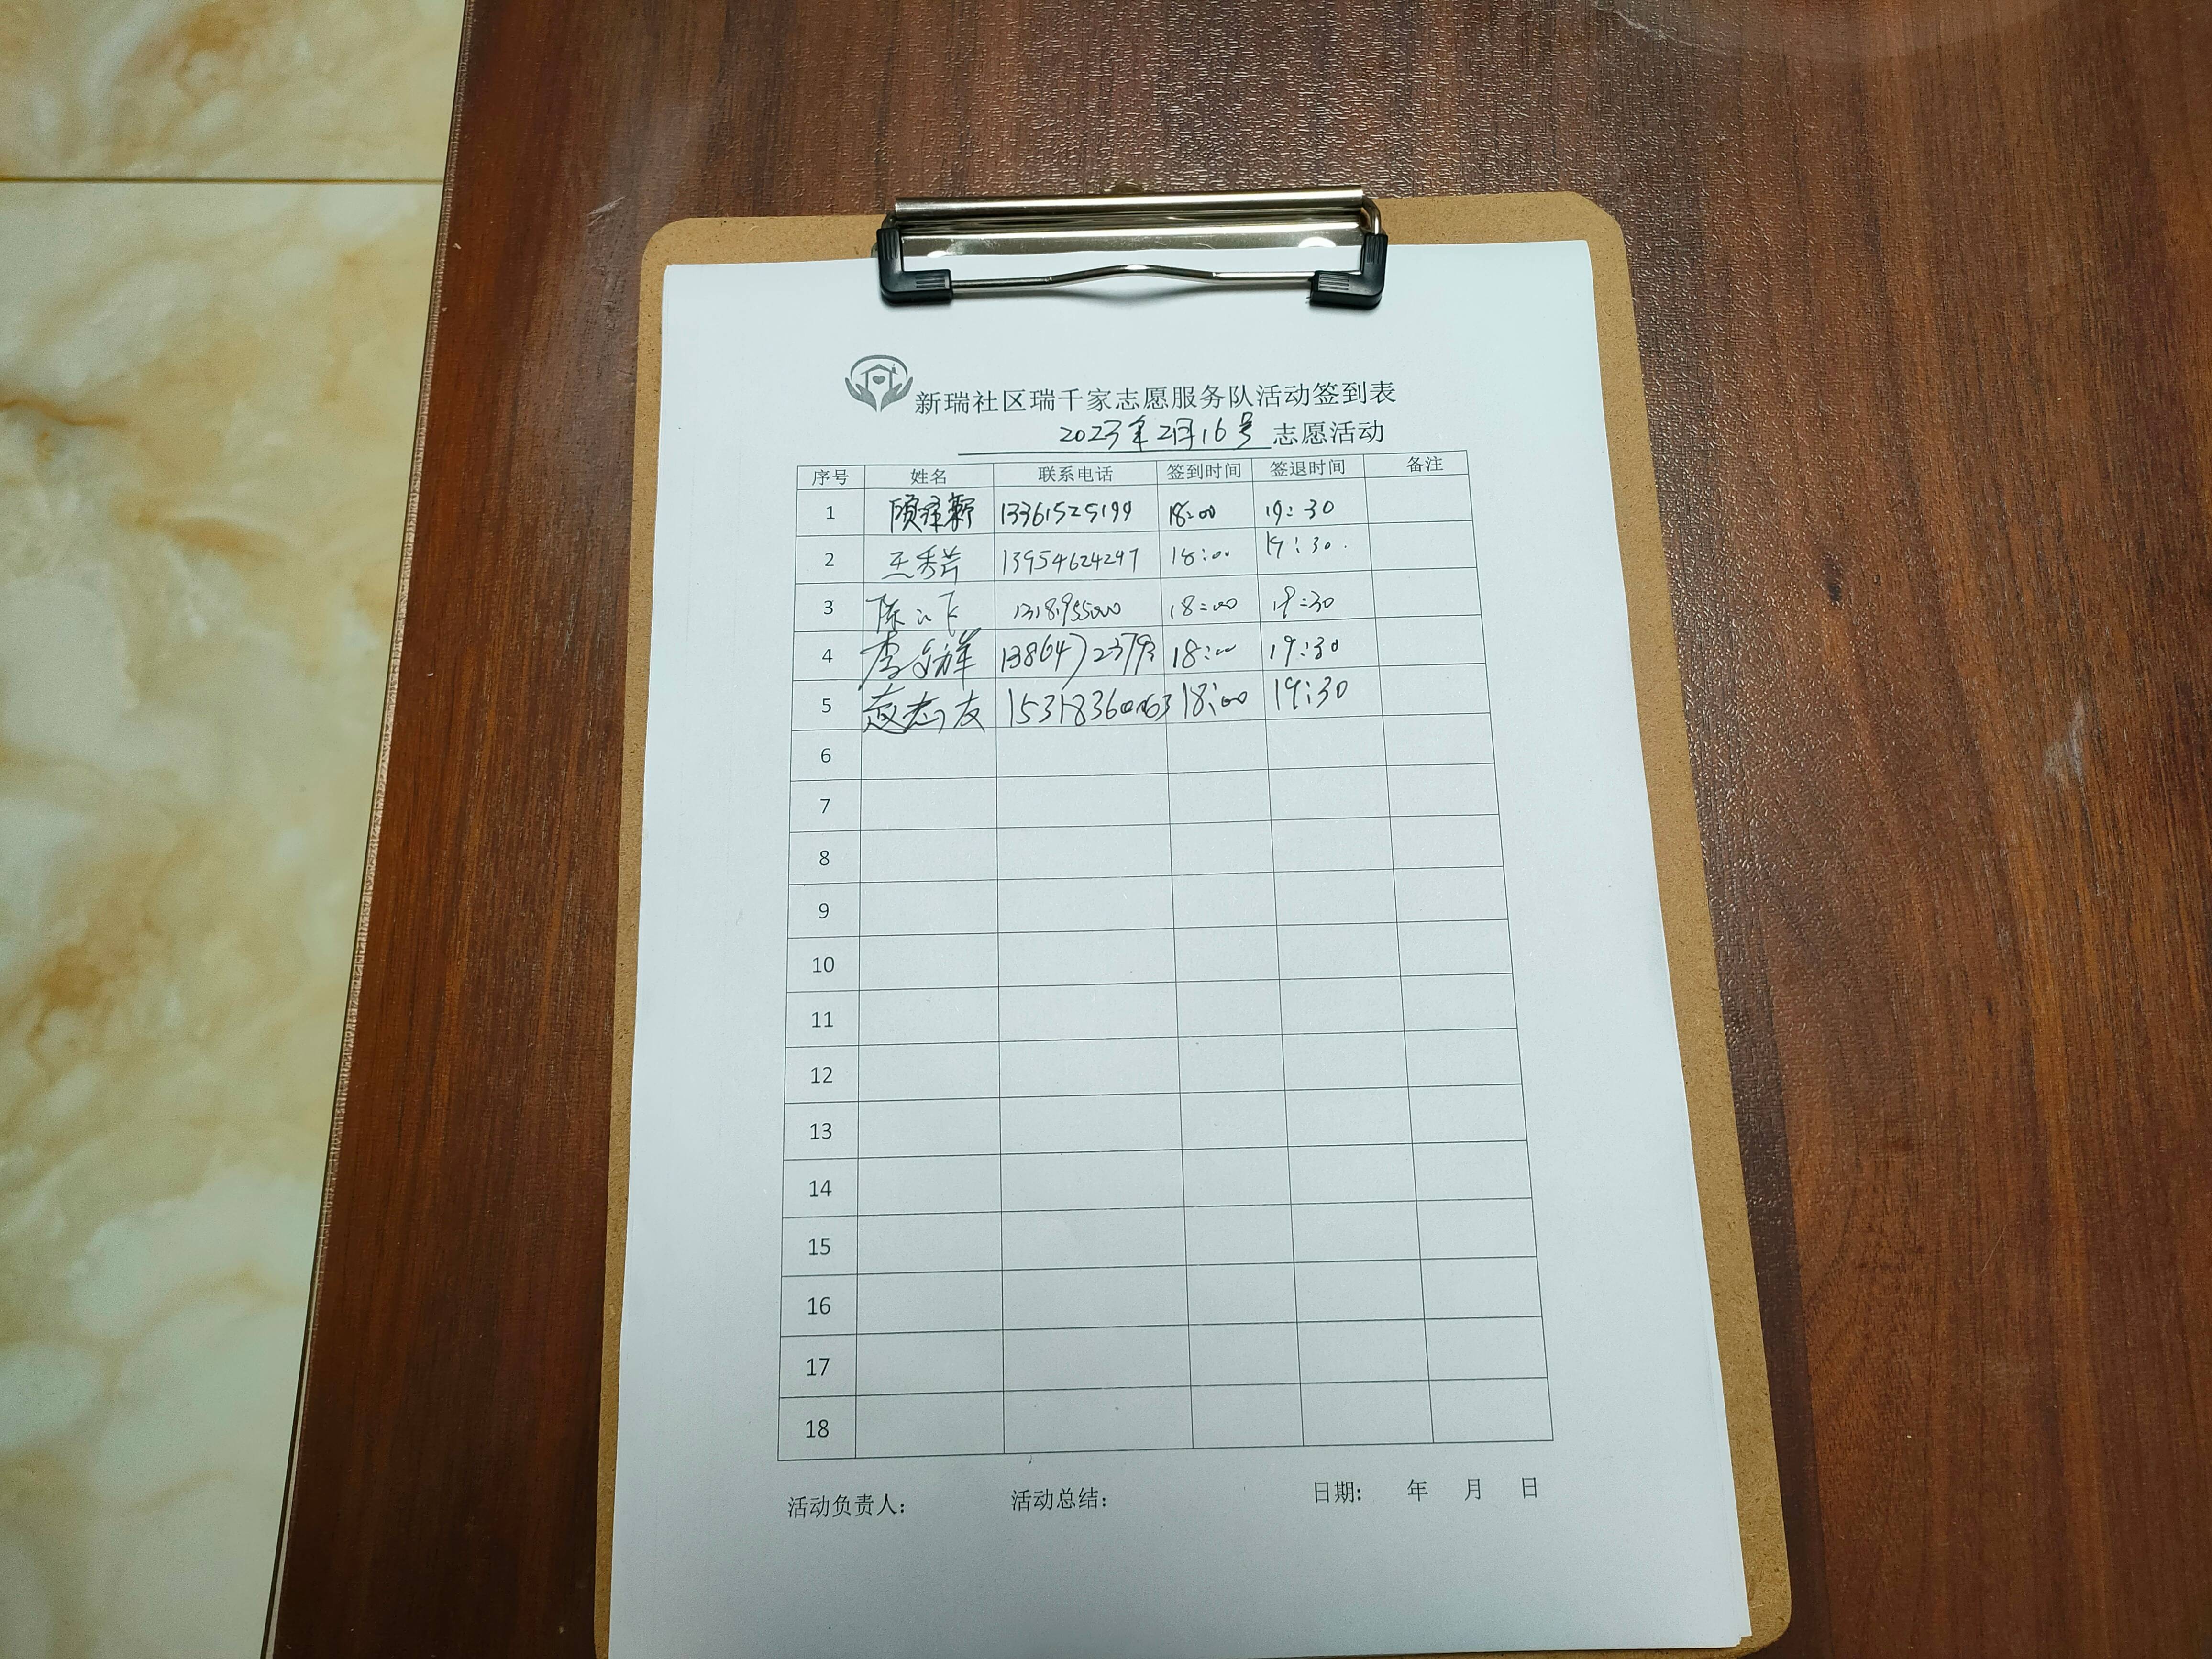 新瑞社区瑞千家志愿服务队活动签到表
2023年2月16号 志愿活动
序号 姓名 联系电话 签到时间 签退时间 备注
1 13361525199 18:00 19:30
2 王秀芹 13954624297 18:00 19:30.
3 陈 飞 18:00 19:30
4 李 祥 13864723793 18:00 19:30
5 友 15318360063 18:00 19:30
6
7
8
9
10
11
12
13
14
15
16
17
18
活动负责人: 活动总结: 日期: 年 月 日